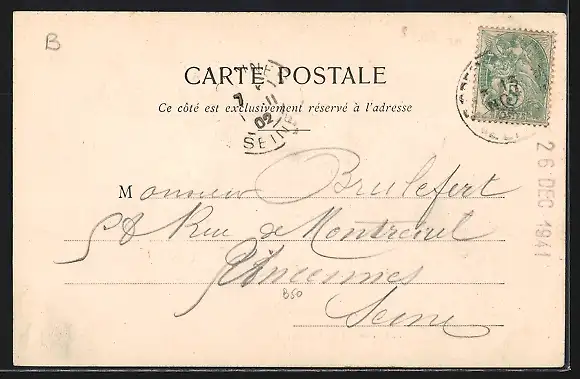 B
CARTE POSTALE
Ce côté est exclusivement réservé à l'adresse
7
11
02
SEINE
5
26 DEC 1941
Monsieur Brulefert
58 Rue de Montreuil
Vincennes
B50
Seine